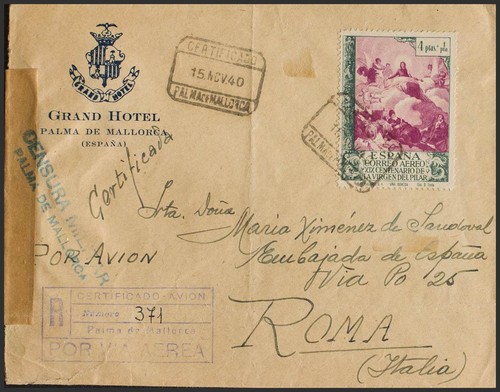 GRAND HOTEL
GRAND HOTEL
PALMA DE MALLORCA
(ESPAÑA)
CERTIFICADO
15.NOV.40
PALMA DE MALLORCA
4 ptas.
ESPAÑA
CORREO AEREO
XIX CENTENARIO DE
LA VIRGEN DEL PILAR
CENSURA MILITAR
PALMA DE MALLORCA
Certificada
Srta. Doña
Maria Ximénez de Sandoval
Embajada de España
Via Po 25
ROMA
(Italia)
POR AVION
CERTIFICADO-AVION
R
Número 371
Palma de Mallorca
POR VIA AEREA